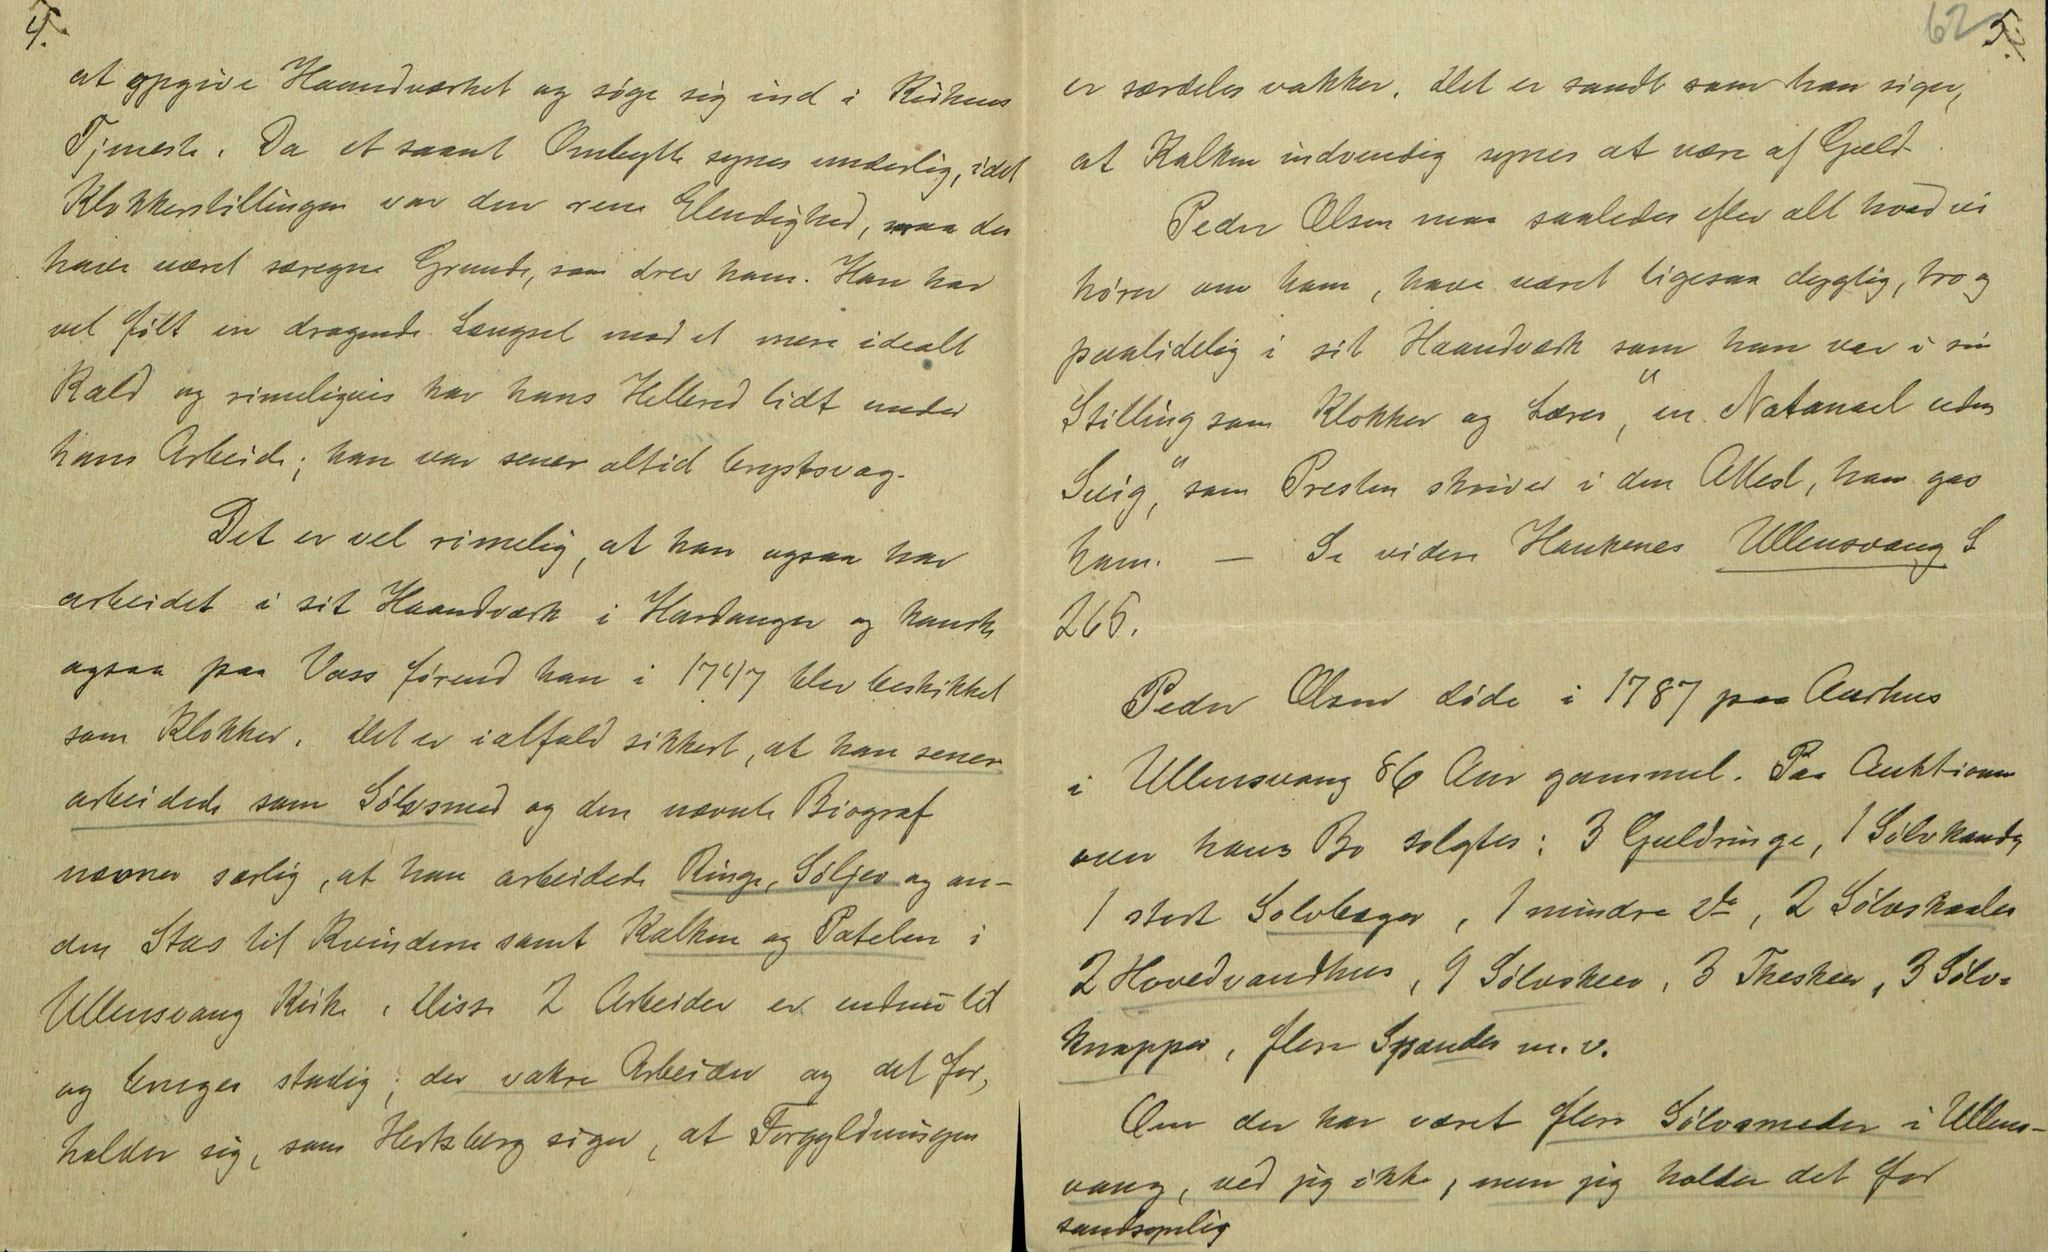 4.
at opgive Haandværket og søge sig ind i Kirkens
Tjeneste. Da et saant Ombytte synes underlig, idet
Klokkerstillingen var den rene Elendighed, maa der
have været særegne Grunde, som drev ham. Han har
vel følt en dragende Længsel mod et mere idealt
Kald og rimeligvis har hans Helbred lidt under
hans Arbeide; han var senere altid brystsvag.
Det er vel rimelig, at han ogsaa har
arbeidet i sit Haandværk i Hardanger og kanske
ogsaa paa Voss førend han i 1747 blev beskikket
som Klokker. Det er ialfald sikkert, at han senere
arbeidede som Sølvsmed og den nævnte Biograf
nævner særlig, at han arbeidede Ringe, Søljer og an-
den Stas til Kvinderne samt Kalken og Patelen i
Ullensvang Kirke. Disse 2 Arbeider er endnu til
og bruges stadig; der vakre Arbeider og det for-
holder sig, som Hertzberg siger, at Forgyldningen
62 5.
er særdeles vakker. Det er sandt som han siger,
at Kalken indvendig synes at være af Guld.
Peder Olsen maa saaledes efter alt hvad vi
hører om ham, have været ligesaa dygtig, tro og
paalidelig i sit Haandværk som han var i sin
Stilling som Klokker og Lærer, "en Natanael uden
Svig," som Presten skriver i den Attest, han gav
ham. — Se videre Haukenes Ullensvang S
265.
Peder Olsen døde i 1787 paa Aarhus
i Ullensvang 86 Aar gammel. Paa Auktionen
over hans Bo solgtes: 3 Guldringe, 1 Sølvkande
1 stort Sølvbæger, 1 mindre do, 2 Sølvskaaler
2 Hovedvandhus, 9 Sølvskeer, 3 Theskeer, 3 Sølv-
knapper, flere Spænder m.v.
Om der har været flere Sølvsmeder i Ullens-
vang, ved jeg ikke, men jeg holder det for
sandsynlig